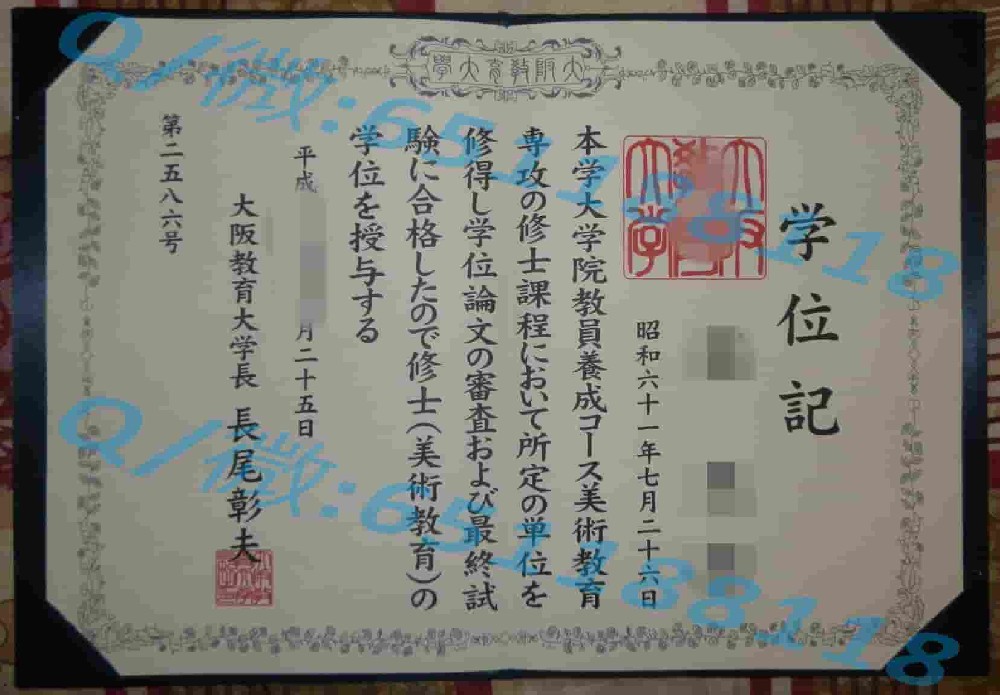 大阪教育大学
学位記
昭和六十一年七月二十六日
本学大学院教員養成コース美術教育
専攻の修士課程において所定の単位を
修得し学位論文の審査および最終試
験に合格したので修士(美術教育)の
学位を授与する
平成
月二十五日
大阪教育大学長 長尾彰夫
第二五八六号
Q/微:651188118
Q/微:651188118